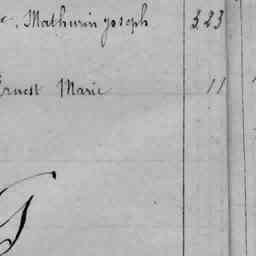 Mathurin Joseph 323
Ernest Marie 11
G